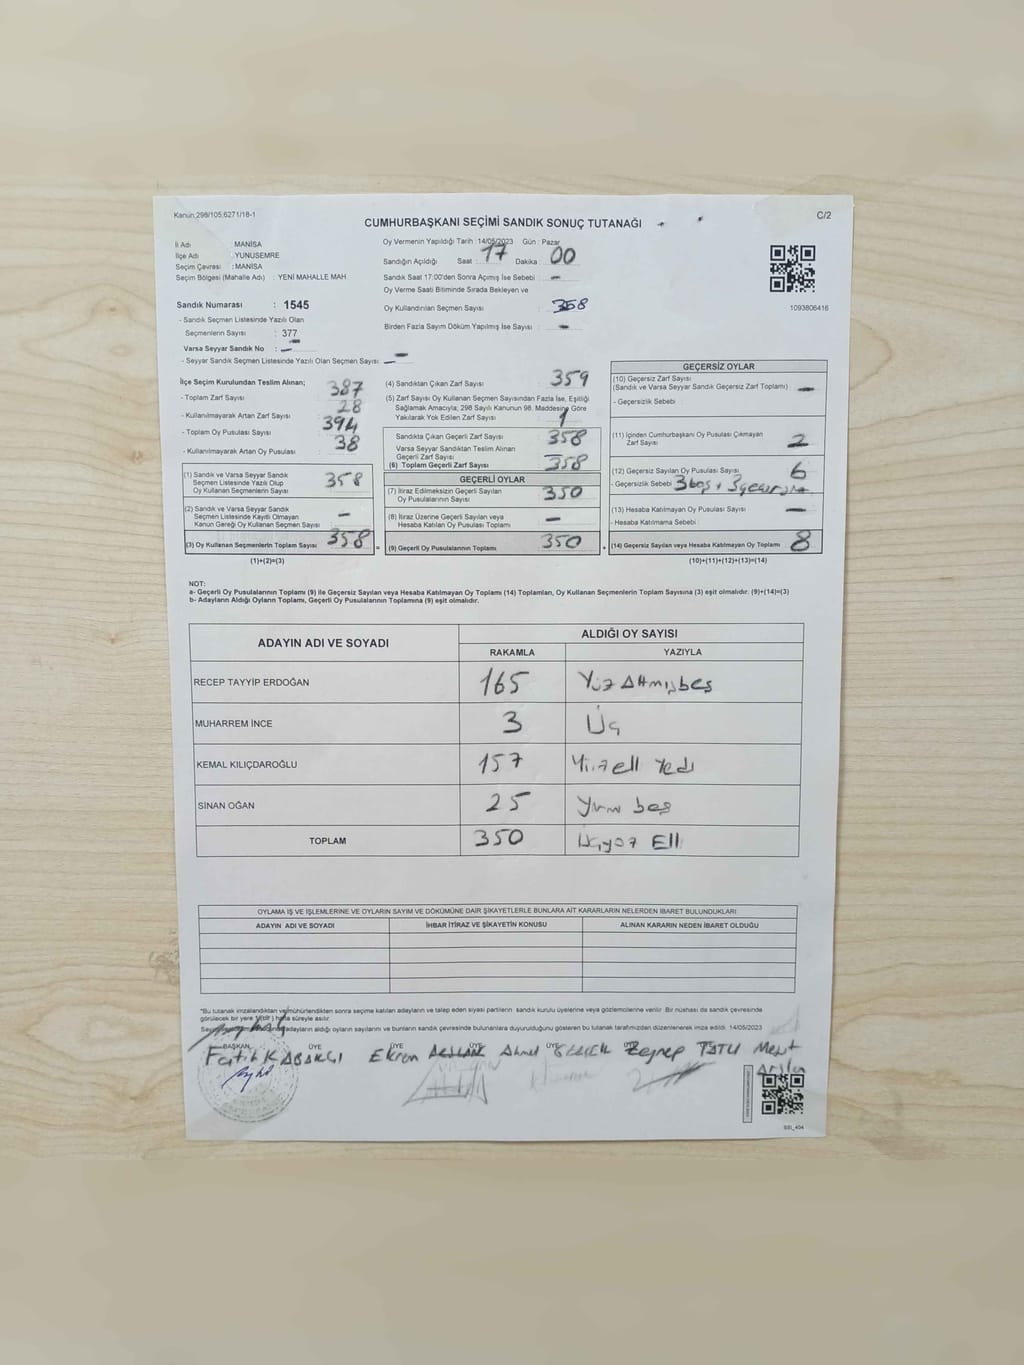 Kanun;298/105;6271/18-1
C/2
CUMHURBAŞKANI SEÇİMİ SANDIK SONUÇ TUTANAĞI
İl Adı : MANİSA
İlçe Adı : YUNUSEMRE
Seçim Çevresi : MANİSA
Seçim Bölgesi (Mahalle Adı) : YENİ MAHALLE MAH
Oy Vermenin Yapıldığı Tarih : 14/05/2023 Gün : Pazar
Sandığın Açıldığı Saat : 17 Dakika : 00
Sandık Saat 17:00'den Sonra Açımış İse Sebebi : -
Oy Verme Saati Bitiminde Sırada Bekleyen ve
Oy Kullandırılan Seçmen Sayısı : 358
Birden Fazla Sayım Döküm Yapılmış İse Sayısı : -
1093806416
Sandık Numarası : 1545
- Sandık Seçmen Listesinde Yazılı Olan
Seçmenlerin Sayısı : 377
Varsa Seyyar Sandık No : -
- Seyyar Sandık Seçmen Listesinde Yazılı Olan Seçmen Sayısı : -
İlçe Seçim Kurulundan Teslim Alınan;
- Toplam Zarf Sayısı : 387
- Kullanılmayarak Artan Zarf Sayısı : 28
- Toplam Oy Pusulası Sayısı : 394
- Kullanılmayarak Artan Oy Pusulası : 38
(1) Sandık ve Varsa Seyyar Sandık
Seçmen Listesinde Yazılı Olup
Oy Kullanan Seçmenlerin Sayısı : 358
(2) Sandık ve Varsa Seyyar Sandık
Seçmen Listesinde Kayıtlı Olmayan
Kanun Gereği Oy Kullanan Seçmen Sayısı : -
(3) Oy Kullanan Seçmenlerin Toplam Sayısı : 358
(1)+(2)=(3)
(4) Sandıktan Çıkan Zarf Sayısı : 359
(5) Zarf Sayısı Oy Kullanan Seçmen Sayısından Fazla İse, Eşitliği
Sağlamak Amacıyla; 298 Sayılı Kanunun 98. Maddesine Göre
Yakılarak Yok Edilen Zarf Sayısı : 1
Sandıkta Çıkan Geçerli Zarf Sayısı : 358
Varsa Seyyar Sandıktan Teslim Alınan
Geçerli Zarf Sayısı
(6) Toplam Geçerli Zarf Sayısı : 358
GEÇERLİ OYLAR
(7) İtiraz Edilmeksizin Geçerli Sayılan
Oy Pusulalarının Sayısı : 350
(8) İtiraz Üzerine Geçerli Sayılan veya
Hesaba Katılan Oy Pusulası Toplamı : -
= (9) Geçerli Oy Pusulalarının Toplamı : 350
GEÇERSİZ OYLAR
(10) Geçersiz Zarf Sayısı
(Sandık ve Varsa Seyyar Sandık Geçersiz Zarf Toplamı) : -
- Geçersizlik Sebebi :
(11) İçinden Cumhurbaşkanı Oy Pusulası Çıkmayan
Zarf Sayısı : 2
(12) Geçersiz Sayılan Oy Pusulası Sayısı : 6
- Geçersizlik Sebebi : 3 boş + 3 geçersiz
(13) Hesaba Katılmayan Oy Pusulası Sayısı : -
- Hesaba Katılmama Sebebi
+ (14) Geçersiz Sayılan veya Hesaba Katılmayan Oy Toplamı : 8
(10)+(11)+(12)+(13)=(14)
NOT:
a- Geçerli Oy Pusulalarının Toplamı (9) ile Geçersiz Sayılan veya Hesaba Katılmayan Oy Toplamı (14) Toplamları, Oy Kullanan Seçmenlerin Toplam Sayısına (3) eşit olmalıdır. (9)+(14)=(3)
b- Adayların Aldığı Oyların Toplamı, Geçerli Oy Pusulalarının Toplamına (9) eşit olmalıdır.
ADAYIN ADI VE SOYADI ALDIĞI OY SAYISI
RAKAMLA YAZIYLA
RECEP TAYYİP ERDOĞAN 165 Yüz Altmışbeş
MUHARREM İNCE 3 Üç
KEMAL KILIÇDAROĞLU 157 Yüzelli Yedi
SİNAN OĞAN 25 Yirmi beş
TOPLAM 350 Üçyüz Elli
OYLAMA İŞ VE İŞLEMLERİNE VE OYLARIN SAYIM VE DÖKÜMÜNE DAİR ŞİKAYETLERLE BUNLARA AİT KARARLARIN NELERDEN İBARET BULUNDUKLARI
ADAYIN ADI VE SOYADI İHBAR İTİRAZ VE ŞİKAYETİN KONUSU ALINAN KARARIN NEDEN İBARET OLDUĞU
"Bu tutanak imzalandıktan ve mühürlendikten sonra seçime katılan adayların ve talep eden siyasi partilerin sandık kurulu üyelerine veya gözlemcilerine verilir. Bir nüshası da sandık çevresinde
görülecek bir yere 1(bir) hafta süreyle asılır.
adayların aldığı oyların sayılarını ve bunların sandık çevresinde bulunanlara duyurulduğunu gösteren bu tutanak tarafımızdan düzenlenerek imza edildi. 14/05/2023
BAŞKAN ÜYE ÜYE ÜYE ÜYE ÜYE
Fatih KABAKÇI Ekrem ARSLAN Ahmet Zeynep TATLI Mert
Arslan
SSI_404